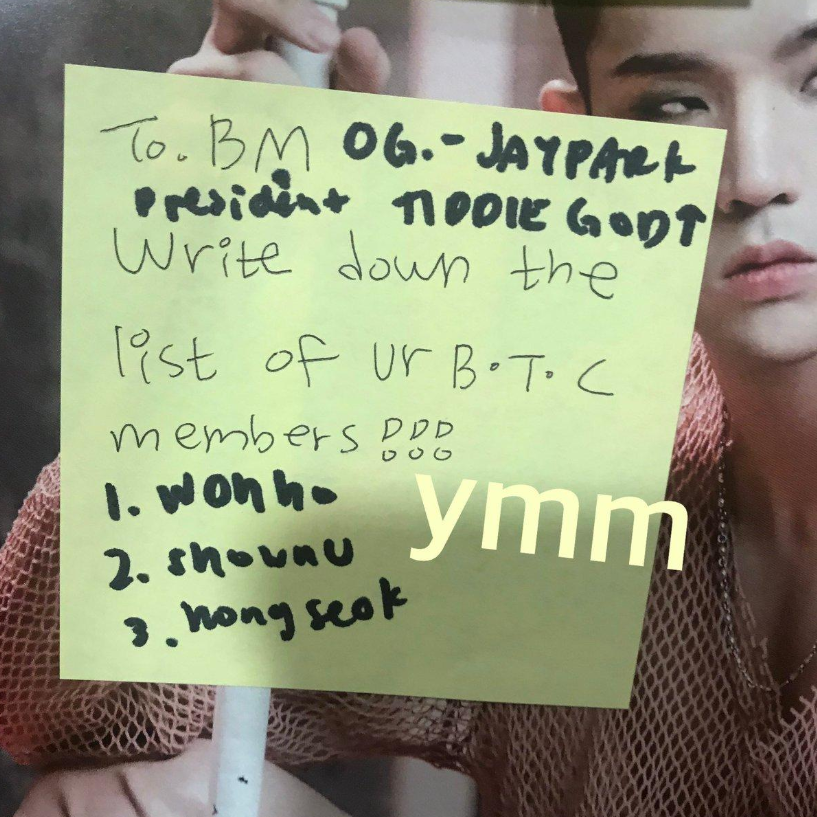 To. BM OG.- JAYPARK
president TIDDIE GOD↑
Write down the
list of ur B.T.C
members !!!
1. wonho
2. shownu
3. hongseok
ymm